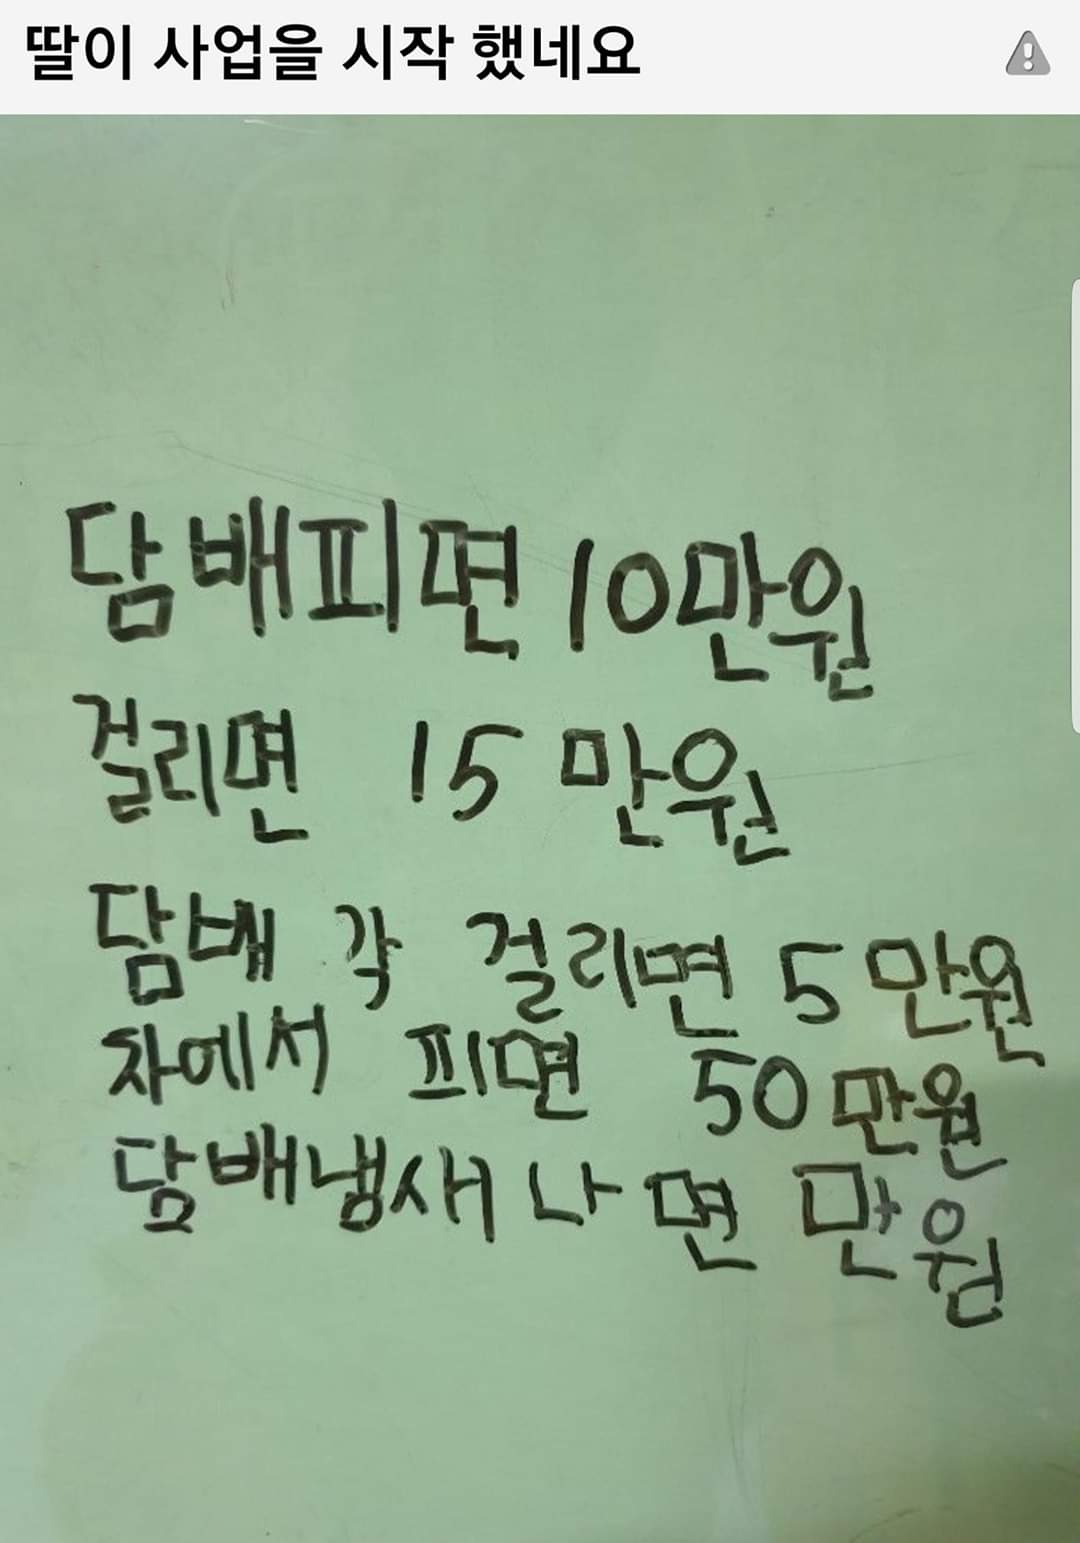 딸이 사업을 시작 했네요
담배피면 10만원
걸리면 15만원
담배 각 걸리면 5만원
차에서 피면 50만원
담배냄새나면 만원